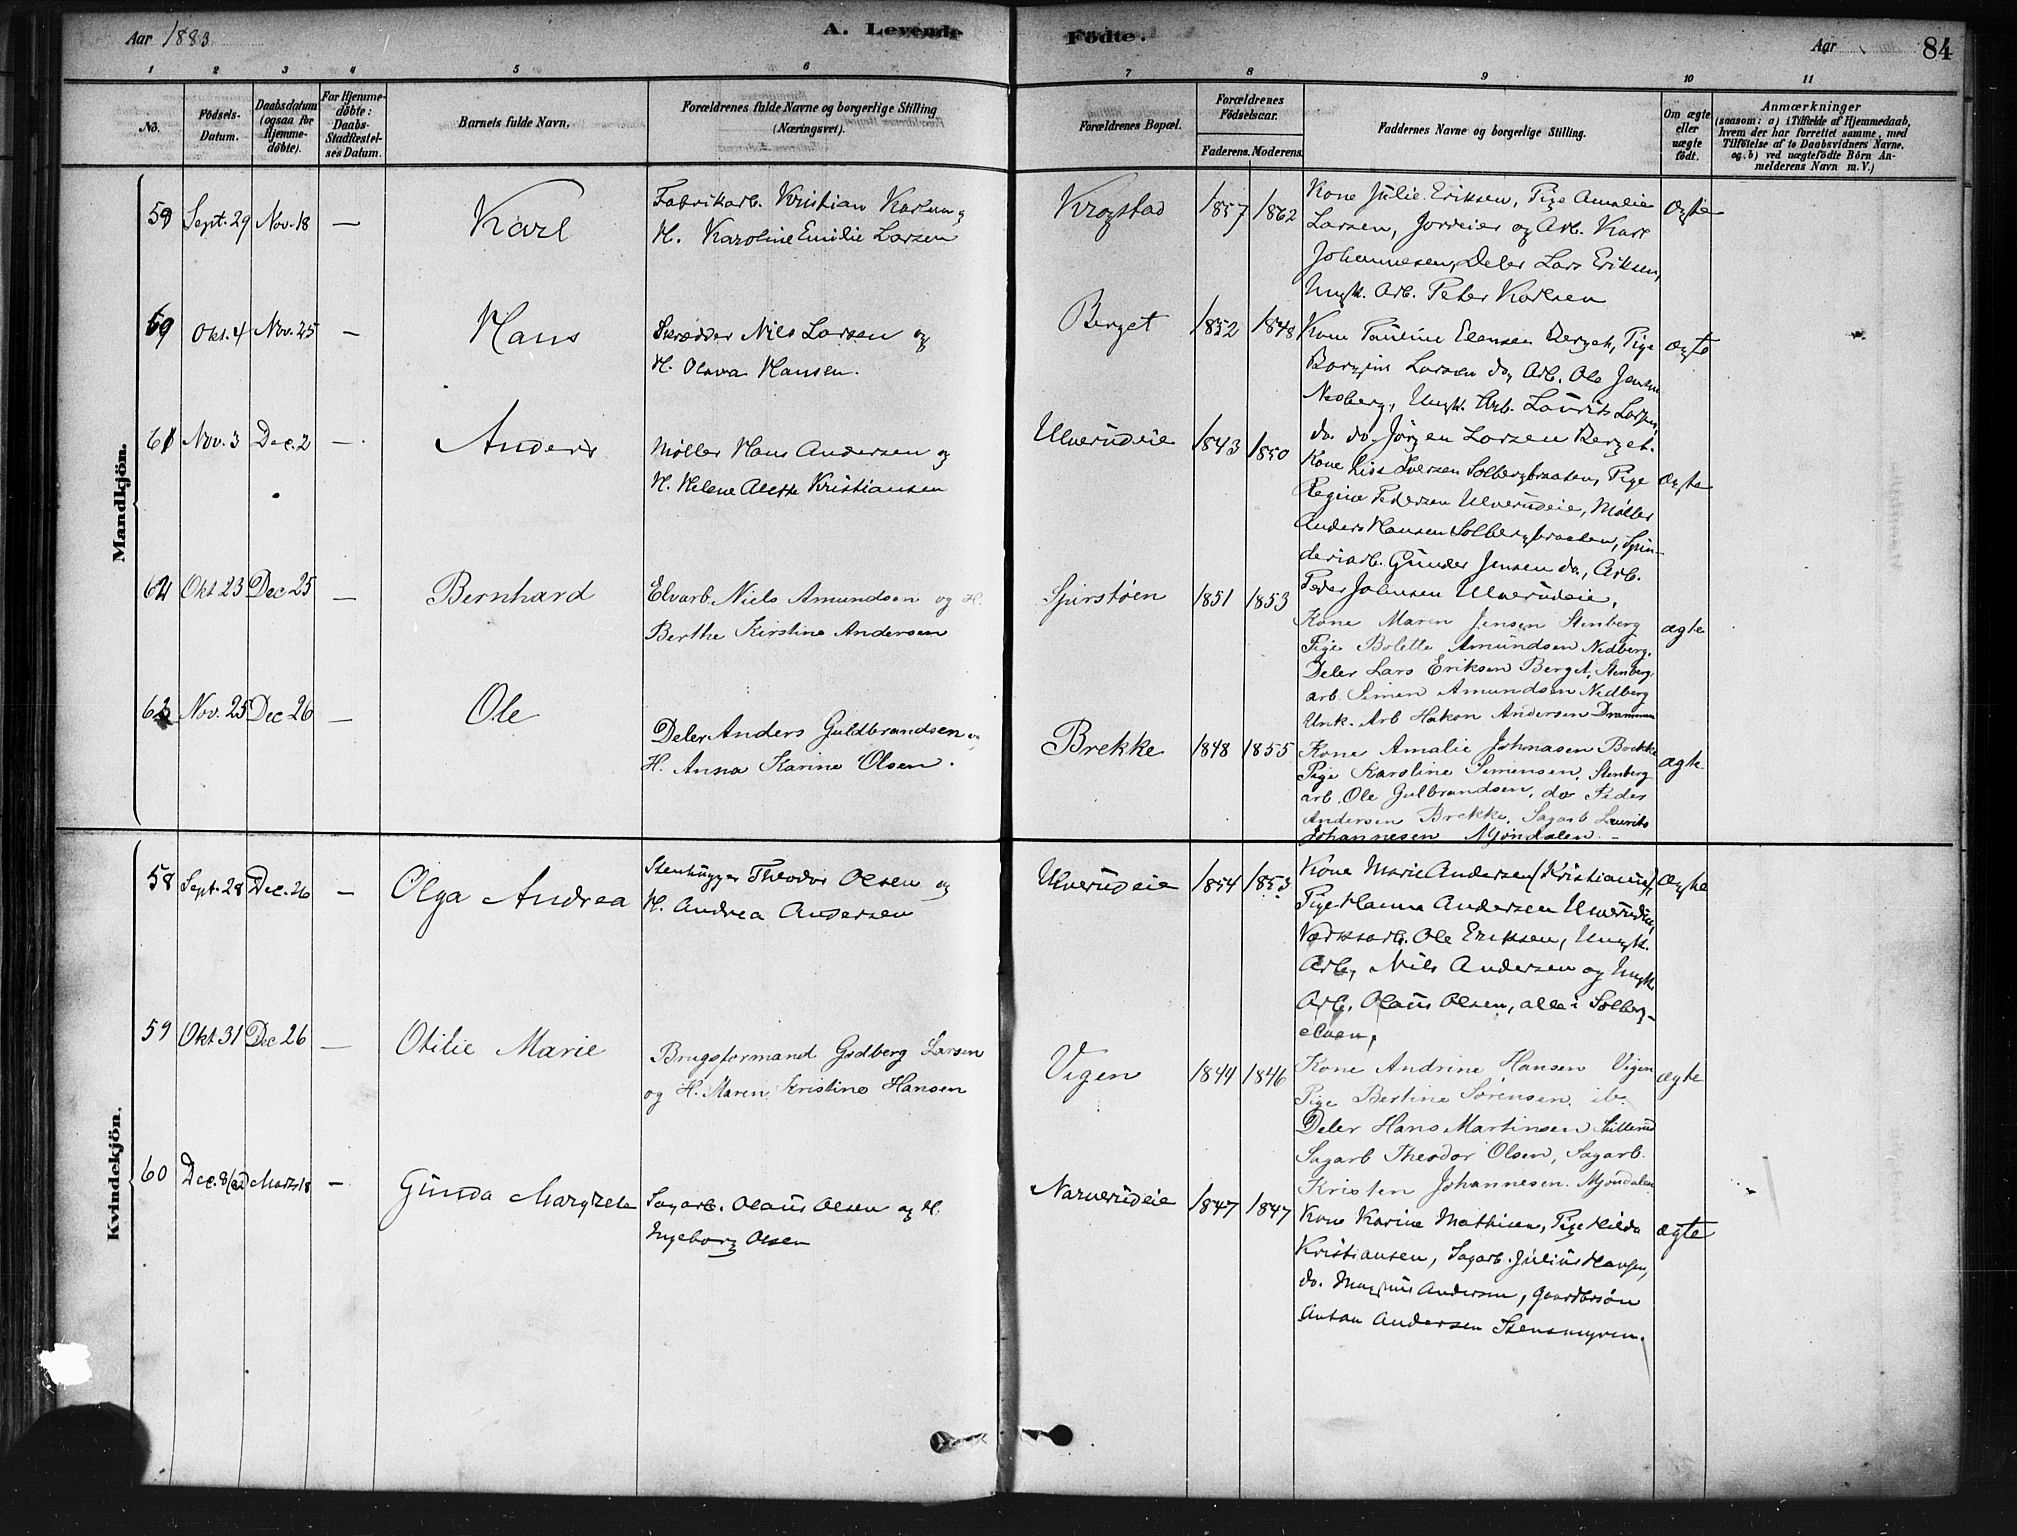 Aar 1883
A. Levende Födte.
Aar
84
1 2 3 4 5 6 7 8 9 10 11
No.
Födsels-Datum.
Daabsdatum (ogsaa for Hjemme-döbte).
For Hjemme-döbte: Daabs-Stadfæstel-ses Datum.
Barnets fulde Navn.
Forældrenes fulde Navne og borgerlige Stilling (Næringsvei).
Forældrenes Bopæl.
Forældrenes Födselsaar.
Faderens. Moderens.
Faddernes Navne og borgerlige Stilling.
Om ægte eller uægte födt.
Anmærkninger
(saasom: a) i Tilfælde af Hjemmedaab,
hvem der har forrettet samme, med
Tilföielse af to Daabsvidners Navne,
og b) ved uægtefödte Börn An-
melderens Navn m. V.)
Mandkjön.
59 Sept. 29 Nov. 18 — Karl
Fabrikarb. Kristian Karlsen og
H. Karoline Emilie Larsen
Krogstad 1857 1862
Kone Julie Eriksen, Pige Amalie
Larsen, Jordeier og Arb. Karl
Johannesen, Deler Lars Eriksen,
Ungk. Arb. Peter Karlsen
ægte
59 Okt. 4 Nov. 25 — Hans
Skrædder Nils Larsen og
H. Olava Hansen.
Berget 1852 1848
Kone Pauline Elensen Berget, Pige
Borgine Larsen do, Arb. Ole Jensen
Nesberg, Ungk. Arb. Laurits Larsen,
do. do. Jörgen Larsen Berget.
ægte
61 Nov. 3 Dec. 2 — Anders
Møller Hans Andersen og
H. Helene Alette Kristiansen
Ulverudeie 1843 1850
Kone Lise Iversen Solbergbraaten, Pige
Regine Pedersen Ulverudeie, Møller
Anders Hansen Solbergbraaten, Spin-
deriarb. Gunder Jensen do., Arb.
Peder Johnsen Ulverudeie,
ægte
62 Okt 23 Dec 25 — Bernhard
Elvarb. Niels Amundsen og H.
Berthe Kirstine Andersen
Spirstøen 1851 1853
Kone Maren Jensen Stenberg
Pige Bolette Amundsen Nedberg.
Deler Lars Eriksen Berget, Stenberg
arb. Simen Amundsen Nedberg
Unk. Arb Hakon Andersen Drammen
ægte
63 Nov. 25 Dec 26 — Ole
Deler Anders Guldbrandsen og
H. Anna Karine Olsen.
Brekke 1848 1855
Kone Amalie Johnasen Brekke
Pige Karoline Simensen, Stenberg
arb. Ole Gulbrandsen, do Peder
Andersen Brekke, Sagarb Laurits
Johannesen Mjöndalen.
ægte
Kvindekjön.
58 Sept. 28 Dec. 26 — Olga Andrea
Stenhugger Theodor Olsen og
H. Andrea Andersen
Ulverudeie 1854 1853
Kone Marie Andersen (Kristiania),
Pige Hanna Andersen Ulverudeie,
Værksarb. Ole Eriksen, Ungk.
Arb, Nils Andersen og Ungk.
Arb. Olaus Olsen, alle i Solberg-
elven,
ægte
59 Okt 31 Dec 26 — Otilie Marie
Brugsformand Gudberg Larsen
og H. Maren Kristine Hansen
Vigen 1844 1846
Kone Andrine Hansen Vigen
Pige Bertine Sörensen ib.
Deler Hans Martinsen Stillerud
Sagarb Theodor Olsen, Sagarb.
Kristen Johannesen. Mjöndalen
ægte
60 Dec. 8 Marts 18 — Gunda Margrete
Sagarb. Olaus Olsen og H.
Ingeborg Olsen
Narverudeie 1847 1847
Kone Karine Mathisen, Pige Hilda
Kristiansen, Sagarb. Julius Hansen,
do. Magnus Andersen, Gaardbrsön
Anton Andersen Stensmyren.
ægte